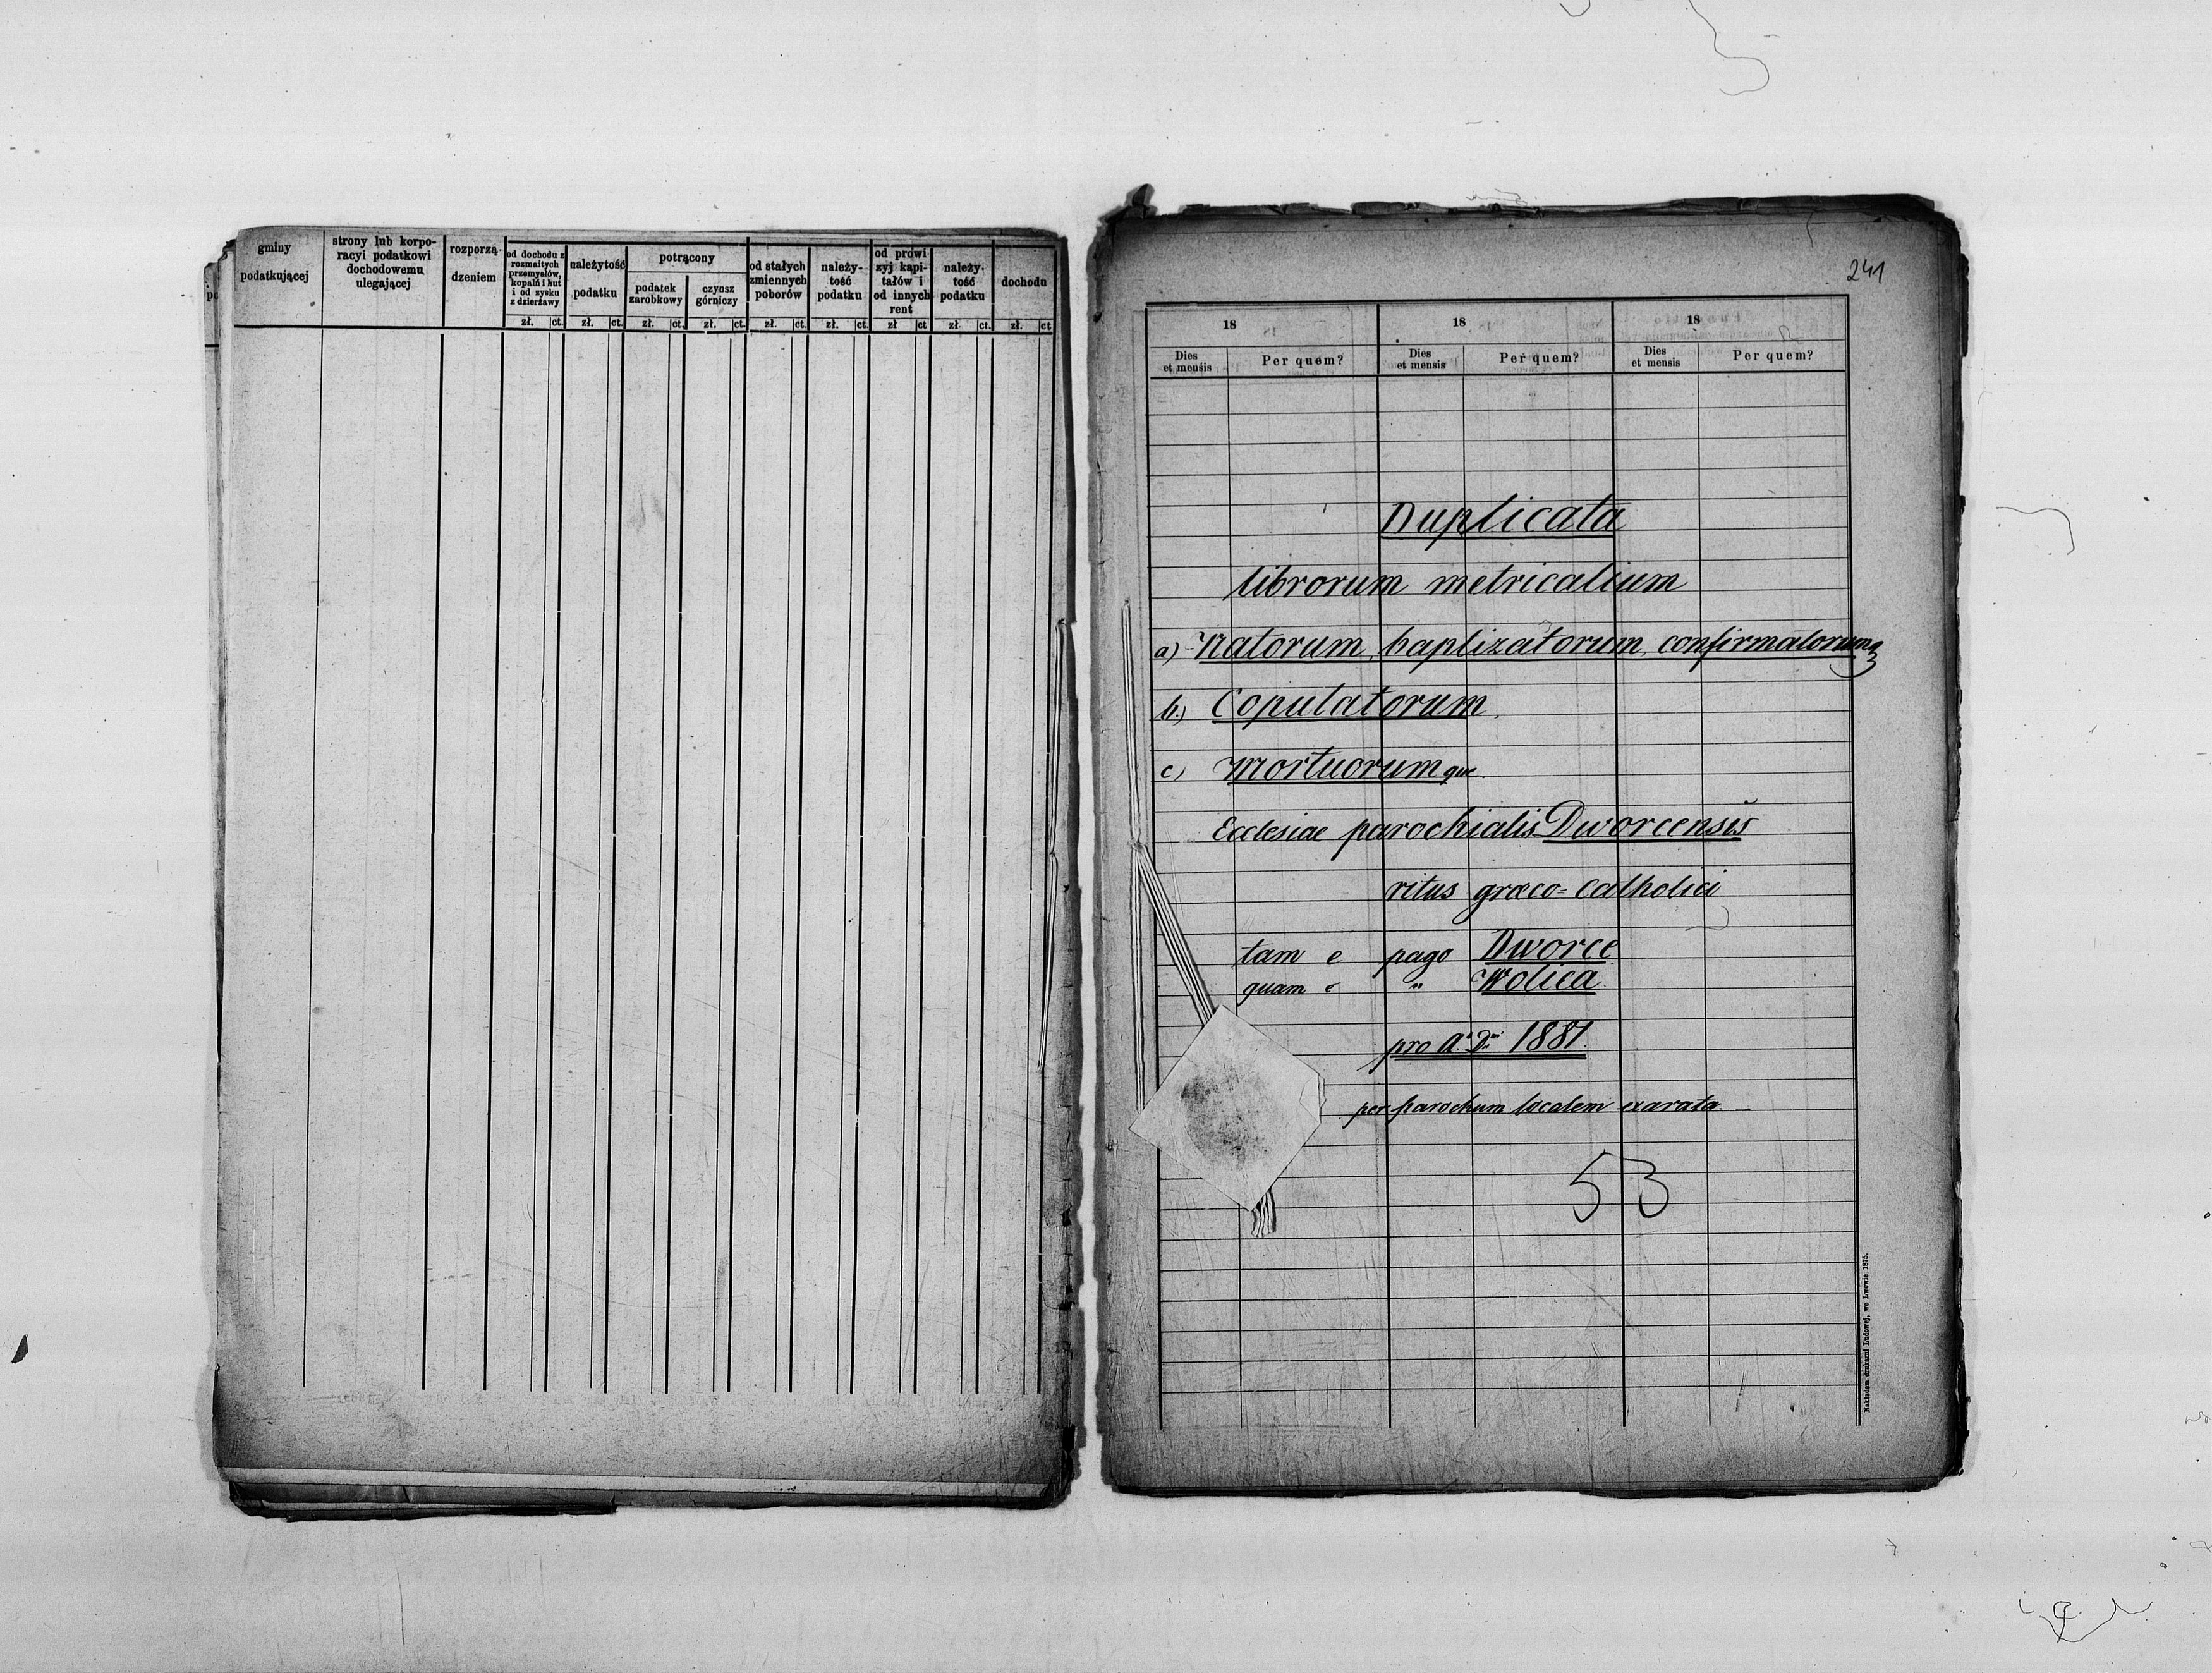 gminy
podatkującej
strony lub korpo-
racyi podatkowi
dochodowemu
ulegającej
rozporzą-
dzeniem
od dochodu z
rozmaitych
przemysłów,
kopalń i hut
i od zysku
z dzierżawy
zł. ct.
należytość
podatku
zł. ct.
potrącony
podatek
zarobkowy
zł. ct.
czynsz
górniczy
zł. ct.
od stałych
zmiennych
poborów
zł. ct.
należy-
tość
podatku
zł. ct.
od prowi
zyj kapi-
tałów i
od innych
rent
zł ct
należy-
tość
podatku
zł. ct.
dochodu
zł. ct
241
18 18 18
Dies
et mensis
Per quem?
Dies
et mensis
Per quem?
Dies
et mensis
Per quem?
Duplicata
librorum metricalium
a) Natorum, baptizatorum, confirmatorum
b.) Copulatorum
c) Mortuorumque
Ecclesiae parochialis Dworcensis
ritus græco=catholici
tam e pago Dworce
quam e " Wolica
pro A. D. 1881.
per parochum localem exarata.
53
Nakładem drukarni Ludowej, we Lwowie 1875.